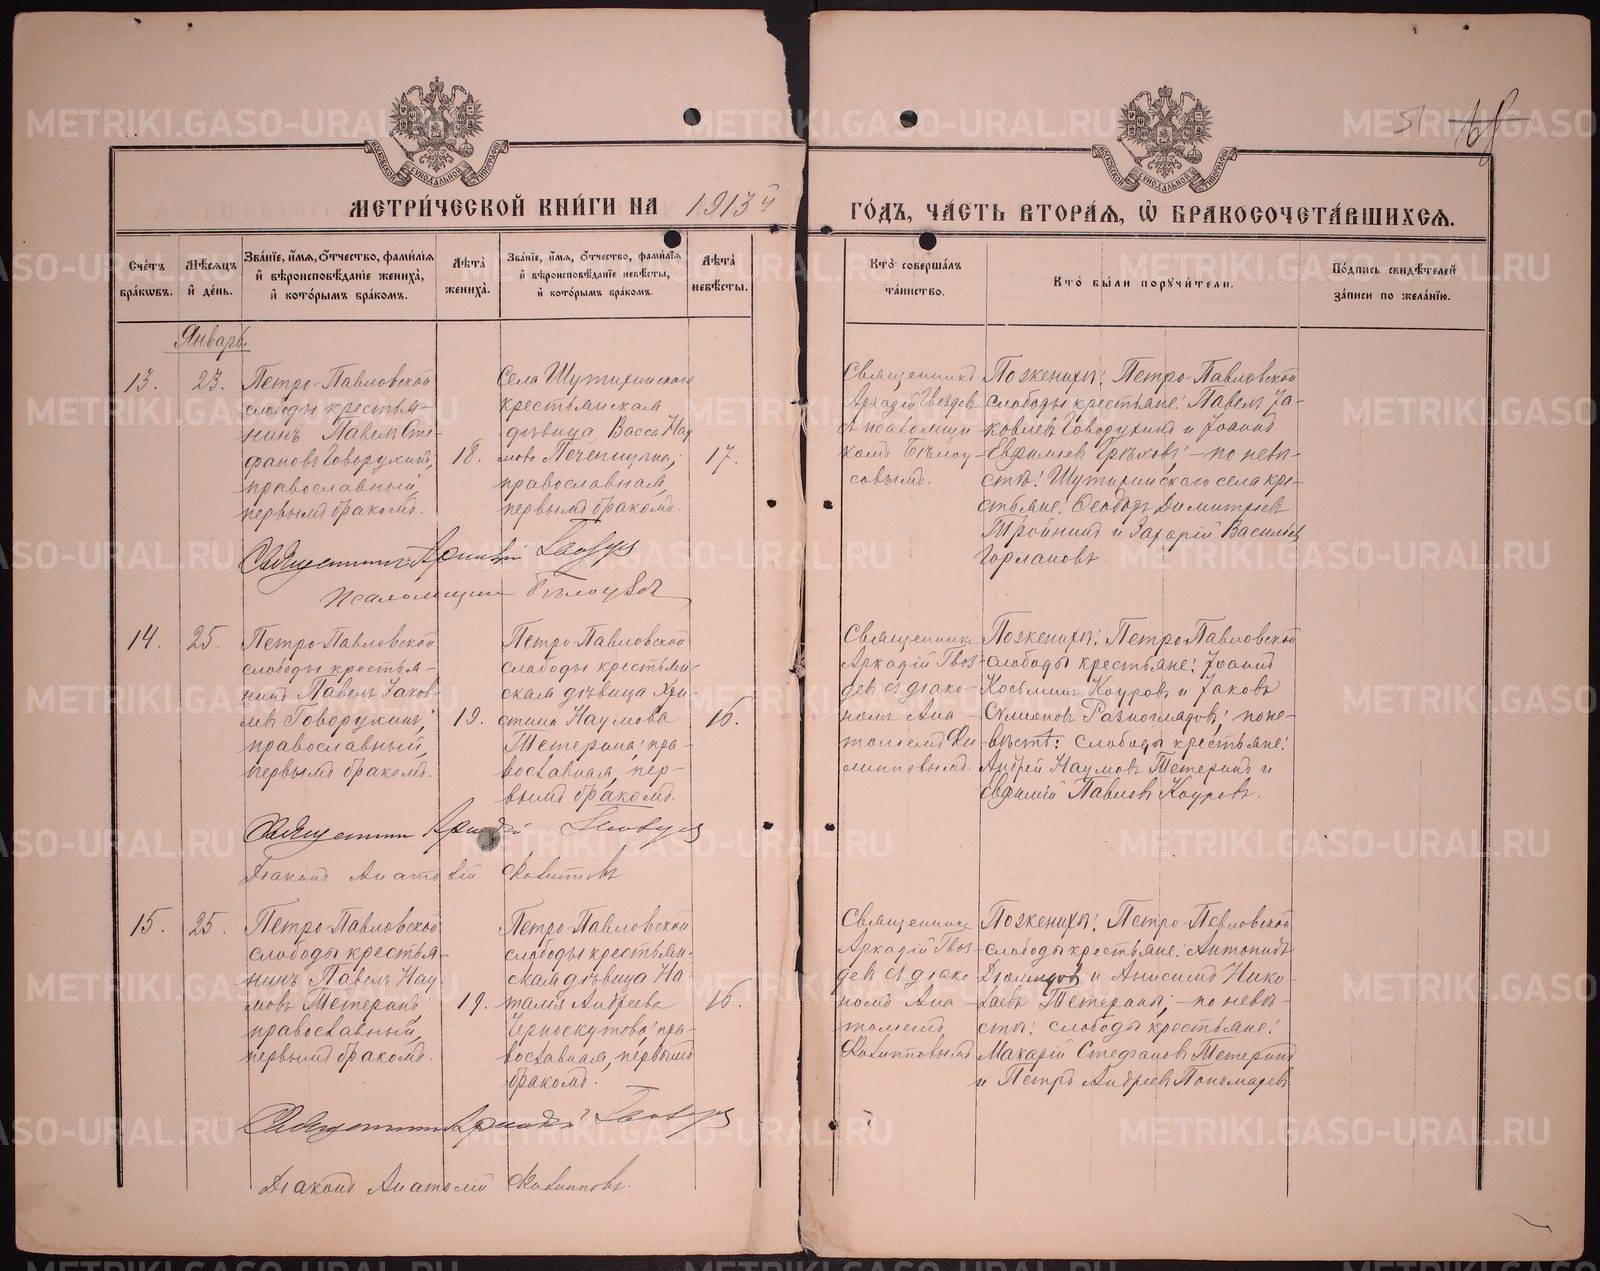 51 68
МОСКОВСКОЙ СѴНОДАЛЬНОЙ ТИПОГРАФІИ
МОСКОВСКОЙ СѴНОДАЛЬНОЙ ТИПОГРАФІИ
МЕТРИ́ЧЕСКОЙ КНИ́ГИ НА 1913й ГО́ДЪ, ЧА́СТЬ ВТОРА́Ѧ, Ѡ҆ БРАКОСОЧЕТА́ВШИХСѦ.
Сче́тъ бра́кѡвъ.
Мѣ́сѧцъ и҆ де́нь.
Зва́нїе, и҆́мѧ, ѻ҆́тчество, фами́лїѧ и҆ вѣроисповѣ́данїе жениха̀, и҆ кото́рымъ бра́комъ.
Лѣ́та жениха̀.
Зва́нїе, и҆́мѧ, ѻ҆́тчество, фами́лїѧ и҆ вѣроисповѣ́данїе невѣ́сты, и҆ кото́рымъ бра́комъ.
Лѣ́та невѣ́сты.
Кто̀ соверша́лъ та́инство.
Кто̀ бы́ли порꙋчи́тели.
По́дпись свидѣ́телей за́писи по жела́нїю.
Январь.
13. 23.
Петро-Павловской
слободы крестья-
нинъ Павелъ Сте-
фановъ Говорухинъ,
православный,
первымъ бракомъ.
18.
Села Шутихинскаго
крестьянская
дѣвица Васса Нау
мова Печенкина,
православная,
первымъ бракомъ.
17.
Священникъ
Аркадій Гвоздев
съ псаломщи
комъ Бѣлоу
совымъ.
По женихѣ: Петро-Павловской
слободы крестьяне: Павелъ Іа-
ковлевъ Говорухинъ и Іоаннъ
Евфимьевъ Грѣховъ; — по невѣ-
стѣ: Шутихинскаго села кре-
стьяне: Ѳеодоръ Димитріевъ
и Захарій Васильевъ
Священникъ Аркадій Гвоздев
Псаломщикъ Бѣлоусовъ
14. 25.
Петро-Павловской
слободы крестья-
нинъ Павелъ Іаков-
левъ Говорухинъ,
православный,
первымъ бракомъ.
19.
Петро-Павловской
слободы крестьян-
ская дѣвица Хри-
стина Наумова
Тетерина, пра-
вославная, пер-
вымъ бракомъ.
16.
Священникъ
Аркадій Гвоз-
девъ съ діако-
номъ Ана-
толіемъ Фи
липповымъ.
По женихѣ: Петро-Павловской
слободы крестьяне: Іоаннъ
Косьминъ Коуровъ и Іаковъ
Симеоновъ Разноглядовъ; по не-
вѣстѣ: слободы крестьяне:
Андрей Наумовъ Тетеринъ и
Евфимій Павловъ Коуровъ.
Священникъ Аркадій Гвоздев
Діаконъ Анатолій Филипповъ.
15. 25.
Петро-Павловской
слободы крестья-
нинъ Павелъ Нау-
мовъ Тетеринъ,
православный,
первымъ бракомъ.
19.
Петро-Павловской
слободы крестьян-
ская дѣвица На-
талія Андреева
Черноскутова, пра-
вославная, первымъ
бракомъ.
16.
Священникъ
Аркадій Гвоз-
девъ съ діако-
номъ Ана-
толіемъ
Филипповымъ.
По женихѣ: Петро-Павловской
слободы крестьяне:
и Анисимъ Нико-
лаевъ Тетерины; — по невѣ-
стѣ: слободы крестьяне:
Макарій Стефановъ Тетеринъ
и Петръ Андреевъ Пономаревъ.
Священникъ Аркадій Гвоздев
Діаконъ Анатолій Филипповъ.
METRIKI.GASO-URAL.RU